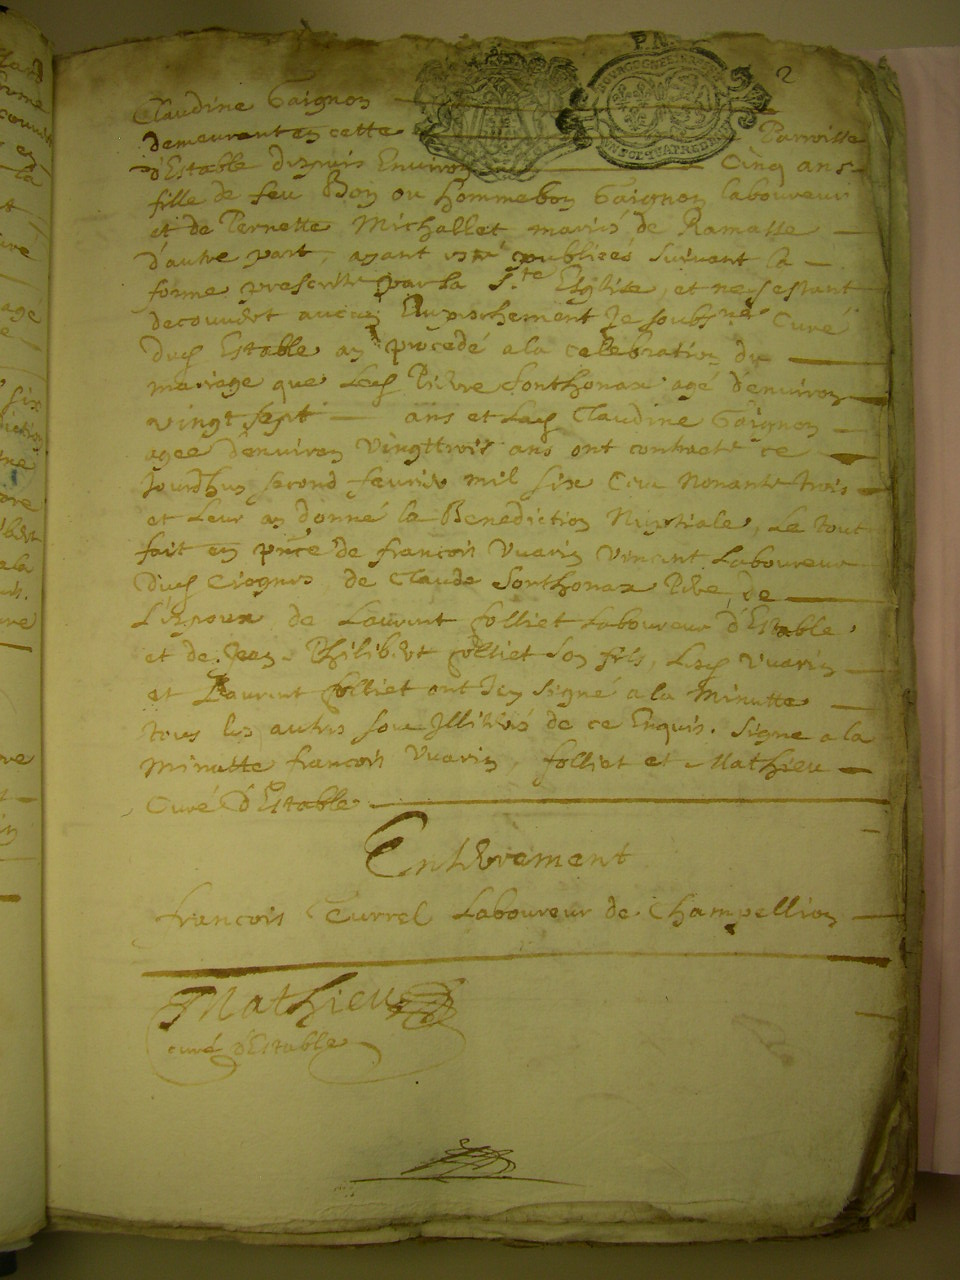 2
Claudine Gaignon
demeurant en cette Parroisse
d'Estable depuis Environ Cinq ans
fille de feu Bon ou hommebon Gaignon laboureur
et de Pernette Michallet mariés de Ramasse
d'autre part, ayant esté publiées suivant la
forme prescritte par la Ste Eglise, et ne s'estant
decouvert aucun Empeschement Je soubsné Curé
dud Estable ay procedé a la celebration du
mariage que led Pierre Sonthonax agé d'environ
vingt sept ans et lad Claudine Gaignon
agee d'environ vingttrois ans ont contracté ce
Jourdhuy second fevrier mil six Cent Nonante trois
et leur ay donné la Benediction Nuptiale, Le tout
fait en pnce de francois Vuarin Vincent Laboureur
dud de Claude Sonthonax Pere de
L'Espoux de Laurent folliet Laboureur d'Estable
et de Jean Philibert folliet son fils, Lesd Vuarin
et Laurent folliet ont Icy signé a la Minutte
tous les autres sont Illitérés de ce Enquis. Signe a la
Minutte francois Vuarin, folliet et Mathieu
Curé d'Estable
Enterrement
francois Curel Laboureur de Champellion
Mathieu
curé d'Estable